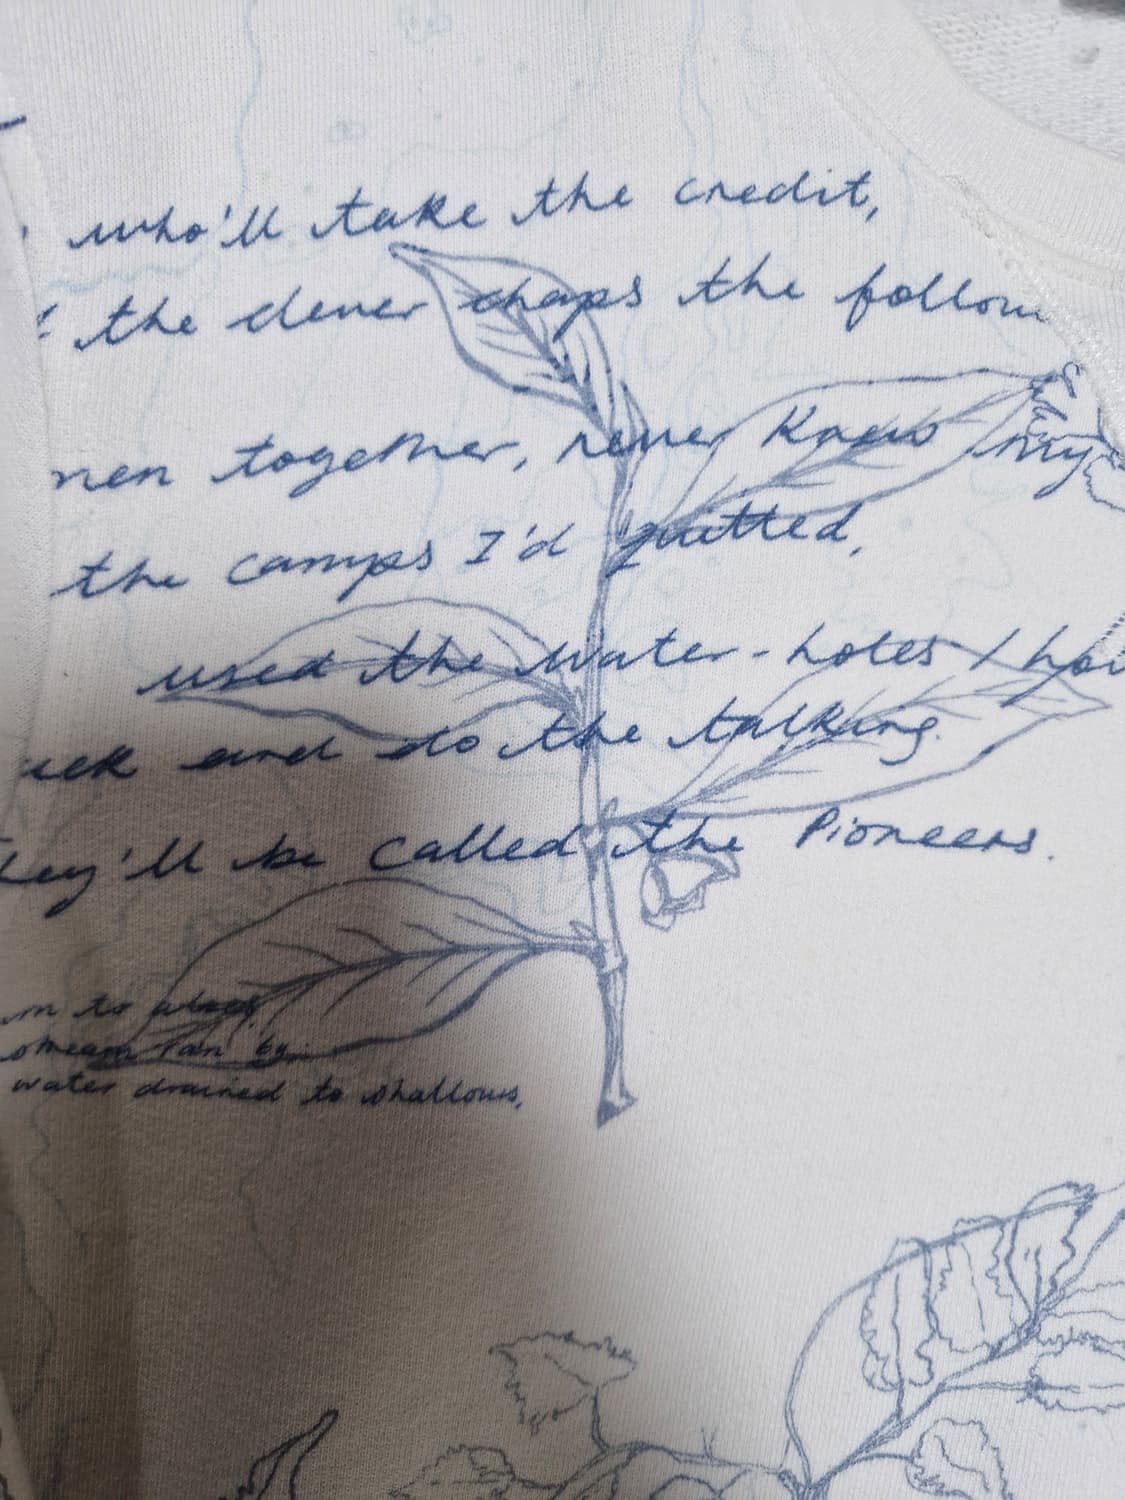 who'll take the credit,
the clever chaps the follow
men together, never Knew my
the camps I'd quitted,
used the water-holes I
and do the talking.
They'll be called the Pioneers.
to
stream ran by
water drained to shallows,